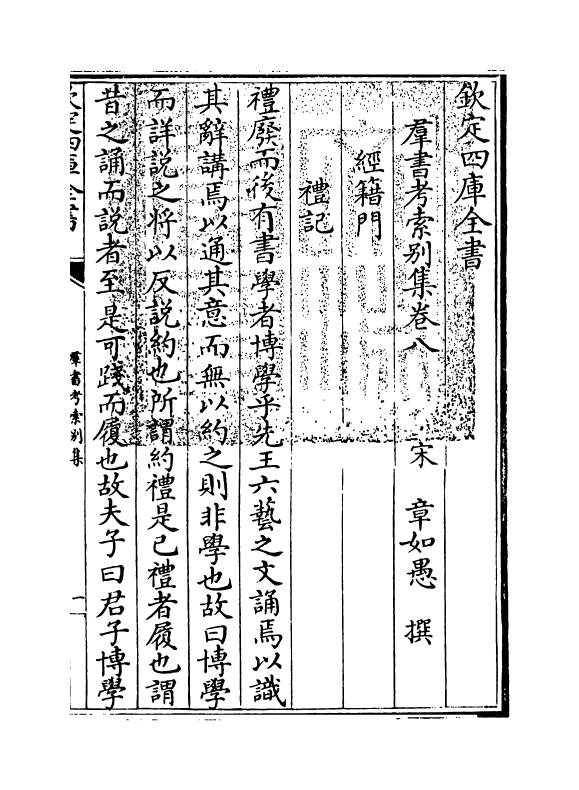 欽定四庫全書
羣書考索别集卷八
宋 章如愚 撰
經籍門
禮記
禮廢而後有書學者博學乎先王六藝之文誦焉以識
其辭講焉以通其意而無以約之則非學也故曰博學
而詳說之将以反説約也所謂約禮是已禮者履也謂
昔之誦而説者至是可踐而履也故夫子曰君子博學
欽定四庫全書
羣書考索别集
一